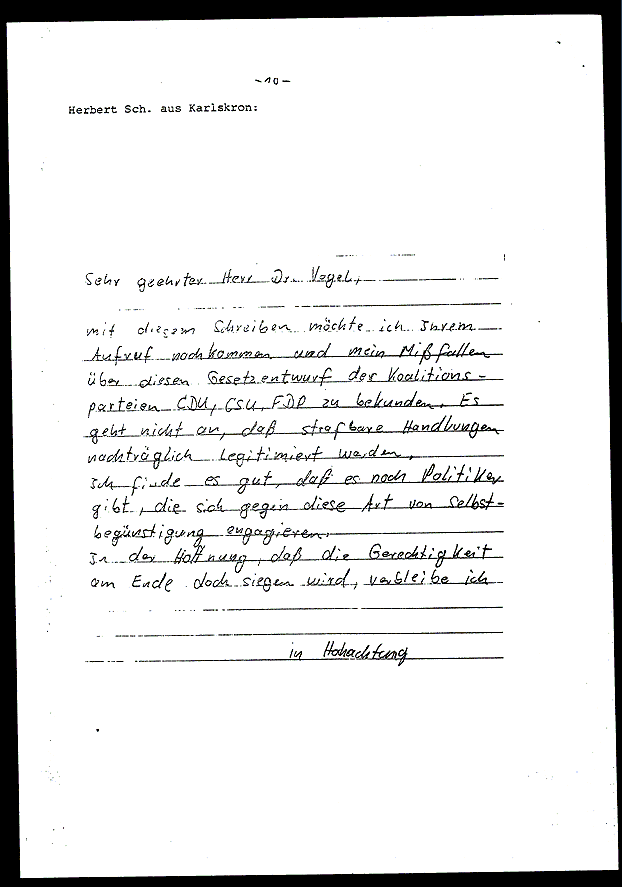 -10-
Herbert Sch. aus Karlskron:
Sehr geehrter Herr Dr. Vogel,
mit diesem Schreiben möchte ich Ihrem
Aufruf nachkommen und mein Mißfallen
über diesen Gesetzentwurf der Koalitions-
parteien CDU, CSU, FDP zu bekunden. Es
geht nicht an, daß strafbare Handlungen
nachträglich legitimiert werden.
Ich finde es gut, daß es noch Politiker
gibt, die sich gegen diese Art von Selbst-
begünstigung engagieren.
In der Hoffnung, daß die Gerechtigkeit
am Ende doch siegen wird, verbleibe ich
in Hohachtung